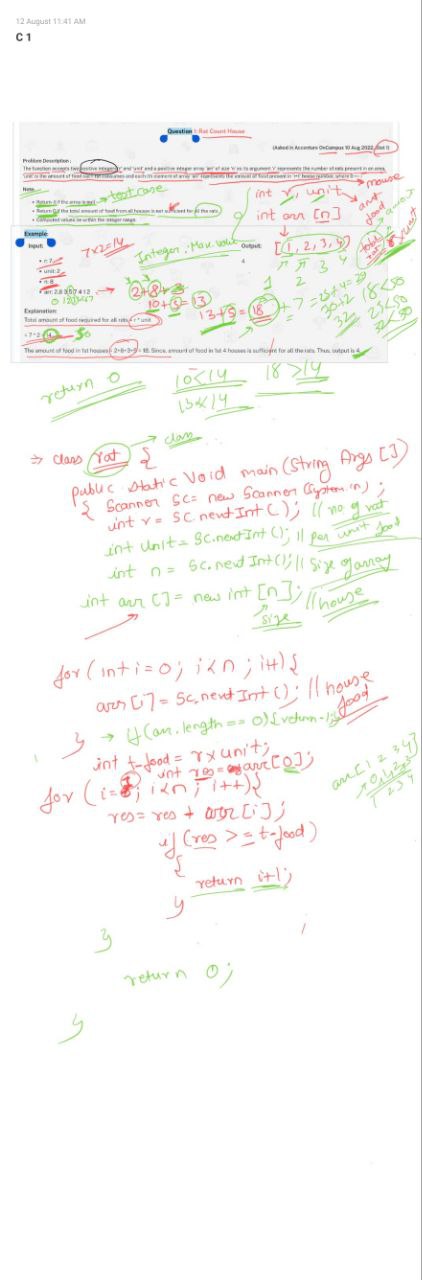 12 August 11:41 AM
C 1
Question : Rat Count House
(Asked in Accenture OnCampus 10 Aug 2022, Slot 1)
Problem Description :
The function accepts two positive integers 'r' and 'unit' and a positive integer array 'arr' of size 'n' as its argument 'r' represents the number of rats present in an area,
'unit' is the amount of food each rat consumes and each ith element of array 'arr' represents the amount of food present in 'i+1' house number, where 0 <= i
Note:
• Return -1 if the array is null → test case
• Return 0 if the total amount of food from all houses is not sufficient for all the rats.
• Computed values lie within the integer range.
int r, unit → mouse
and food
int arr [n]
Example:
Input:
7x2=14
Integer. Max. value
Output:
[1, 2, 3, 4]
1 2 3 4
• r: 7
• unit: 2
• n: 8
• arr: 2 8 3 5 7 4 1 2
0 1 2 3 4 5 6 7
4
2+8+3
10+3=13
13+5=18
18<50
25<50
32<50
32
Explanation:
Total amount of food required for all rats = r * unit
= 7 * 2 = 14 50
The amount of food in 1st houses = 2+8+3+5 = 18. Since, amount of food in 1st 4 houses is sufficient for all the rats. Thus, output is 4.
return 0
10<14 18>14
13<14
⇒ class rat { → class
public static void main (String Args [])
{ Scanner sc= new Scanner (System.in) ;
int r = sc.nextInt() ; // no of rat
int unit = sc.nextInt(); // per unit food
int n = sc.nextInt(); // size of array
int arr []= new int [n]; // house
size
for (int i=0; i<n ; i++) {
arr [i] = sc.nextInt() ; // house food
} → if (arr.length == 0) {return -1;
int t-food = r x unit;
int res = arr[0];
for (i=1; i<n; i++){
arr [1 2 3 4]
0 1 2 3
1 2 3 4
res= res + arr [i] ;
if (res >= t-food)
{
return i+1;
}
}
;
return 0;
}